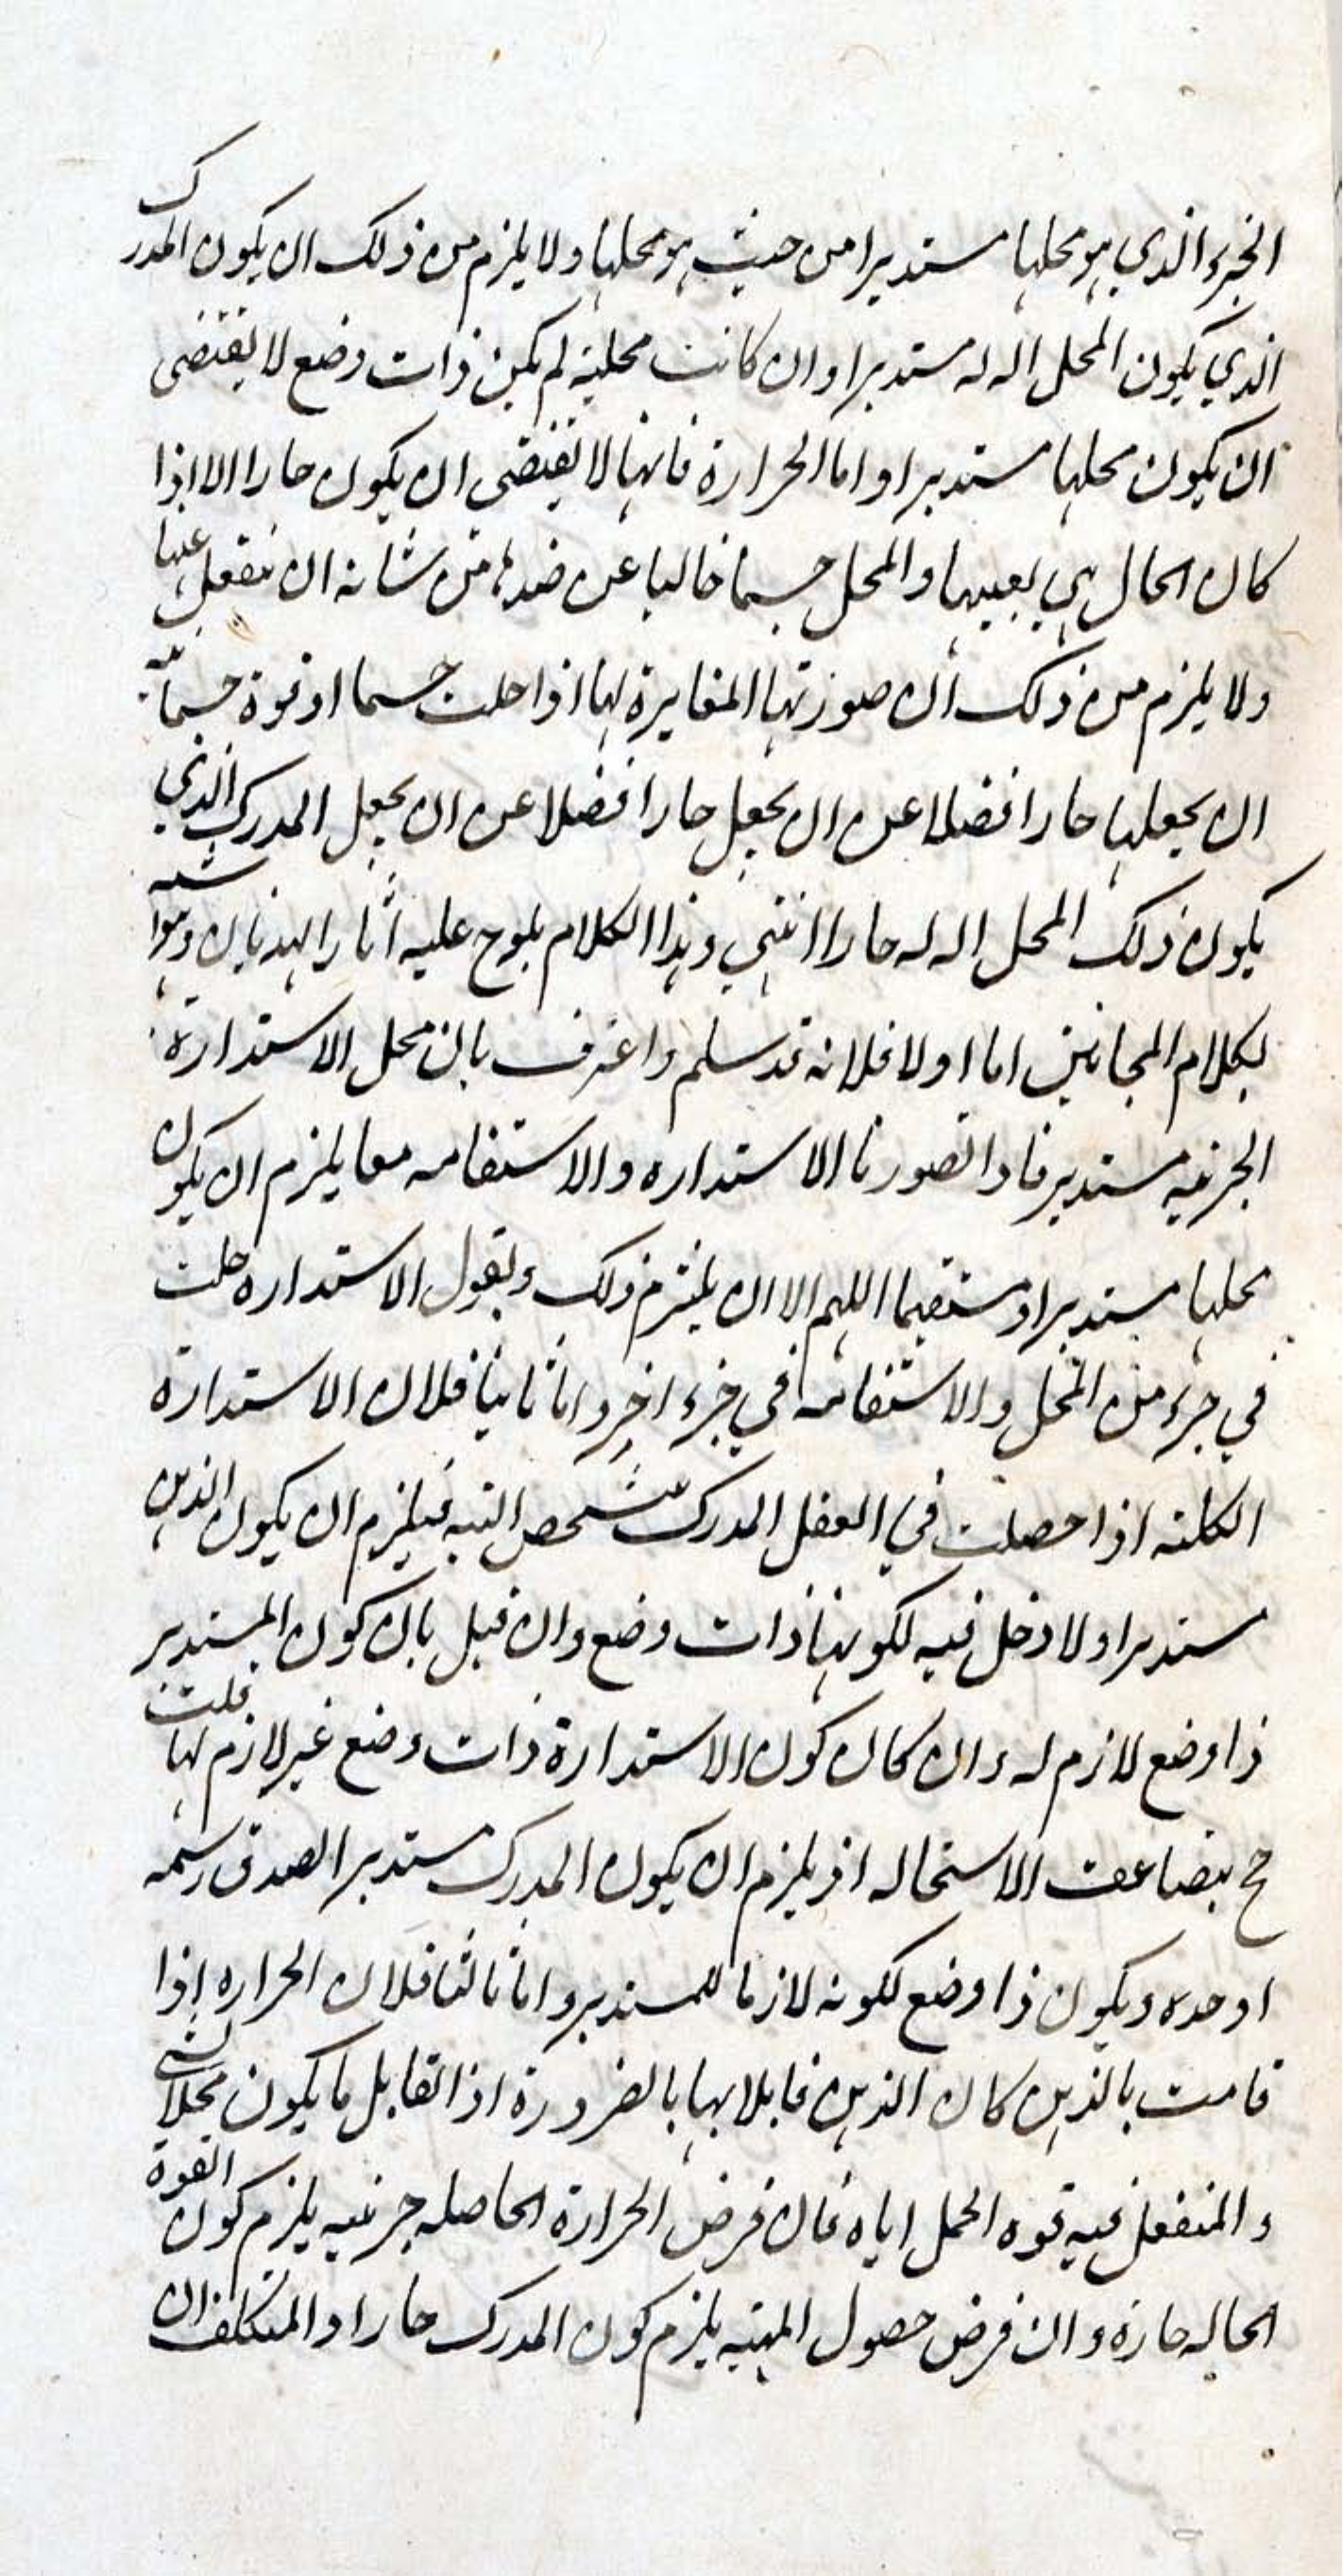 الجزء الذي هو محلها مستديرا من حيث هو محلها ولا يلزم من ذلك ان يكون المدرك
الذي يكون المحل اله له مستديرا وان كانت محليته لم يكن ذات وضع لا يقتضى
ان يكون محلها مستديرا واما الحرارة فانها لا يقتضى ان يكون حارا الا اذا
كان الحال هي بعينها والمحل جسما خاليا عن ضدها من شانه ان ينفعل عنها
ولا يلزم من ذلك ان صورتها المغايرة لها اذا حلت جسما او قوة جسمانيه
ان يجعلها حارا فضلا عن ان يجعل حارا فضلا عن ان يجعل المدرك الذي
يكون ذلك المحل اله له حارا انتهي وهذا الكلام يلوح عليه آثار الهذيان وهو اشبه
بكلام المجانين اما اولا فلانه قد سلم واعترف بان محل الاستدارة
الجزئيه مستدير فاذا تصورنا الاستداره والاستقامه معا يلزم ان يكون
محلها مستديرا ومستقيما اللهم الا ان يلتزم ذلك ويقول الاستداره حلت
في جزء من المحل والاستقامه في جزء اخر واما ثانيا فلان الاستدارة
الكليه اذا حصلت في العقل المدرك تشخص البته فيلزم ان يكون الذهن
مستديرا ولا دخل فيه لكونها ذات وضع وان قيل بان كون المستدير
ذا وضع لازم له وان كان كون الاستدارة ذات وضع غير لازم لها قلت
ح يتضاعف الاستحاله اذ يلزم ان يكون المدرك مستديرا لصدق رسمه
او حده ويكون ذا وضع لكونه لازما للمستدير واما ثالثا فلان الحراره اذا
قامت بالذهن كان الذهن قابلا بها بالضرورة اذ القابل ما يكون محلا لشي
و المنفعل فيه قوه الحمل اياه فان فرض الحرارة الحاصله جزئيه يلزم كون القوة
الحاله حارة وان فرض حصول المهيه يلزم كون المدرك حارا والمتكلف ان